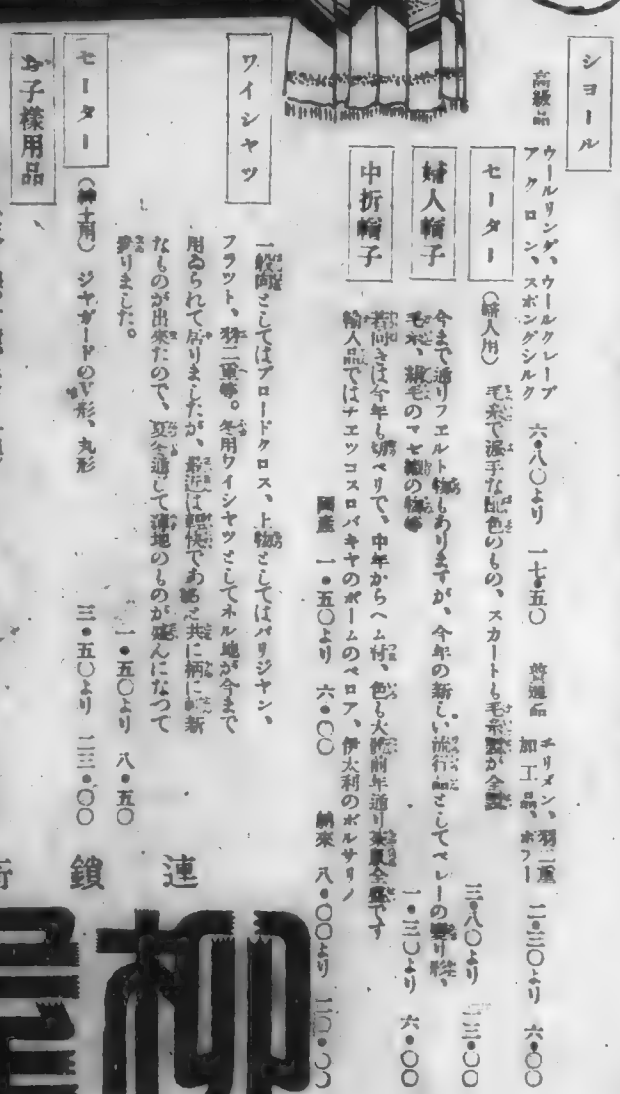 ショール
高級品
ウールリンダ、ウールクレープ
アクロン、スポングシルク
六・八〇より 一七・五〇
普通品
チリメン、羽二重
加工品、ボフー
二・三〇より 六・〇〇
セーター
(婦人用) 毛糸で派手な配色のもの、スカートも毛糸製が全盛
三・八〇より 二三・〇〇
婦人帽子
今まで通りフエルト物もありますが、今年の新しい流行品としてベレーの変り形、
毛糸、絹毛のマゼ織の物等
一・三〇より 六・〇〇
中折帽子
若向きは今年も切ペリで、中年からヘム付、色も大体前年通り茶鼠全盛です
輸入品ではチエッコスロバキヤのボームのベロア、伊太利のボルサリノ
国産 一・五〇より 六・〇〇
舶来 八・〇〇より 二〇・〇〇
ワイシャツ
一般向としてはブロードクロス、上物としてはパリジャン、
フラット、羽二重等。冬用ワイシャツとしてネル地が今まで
用ゐられて居りましたが、最近は軽快であると共に柄に斬新
なものが出来たので、夏冬通して薄地のものが盛んになつて
参りました。
一・五〇より 八・五〇
セーター
(紳士用) ジャガードのV形、丸形
三・五〇より 二三・〇〇
お子様用品
連鎖
柳屋